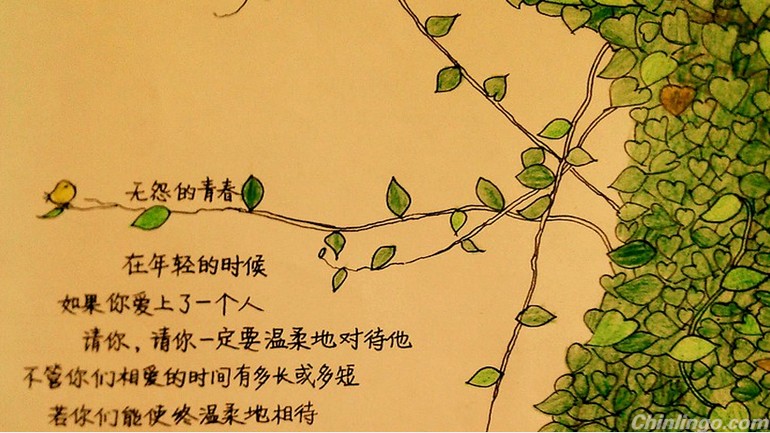 无怨的青春
在年轻的时候
如果你爱上了一个人
请你，请你一定要温柔地对待他
不管你们相爱的时间有多长或多短
若你们能使终温柔地相待
Chinlingo.com